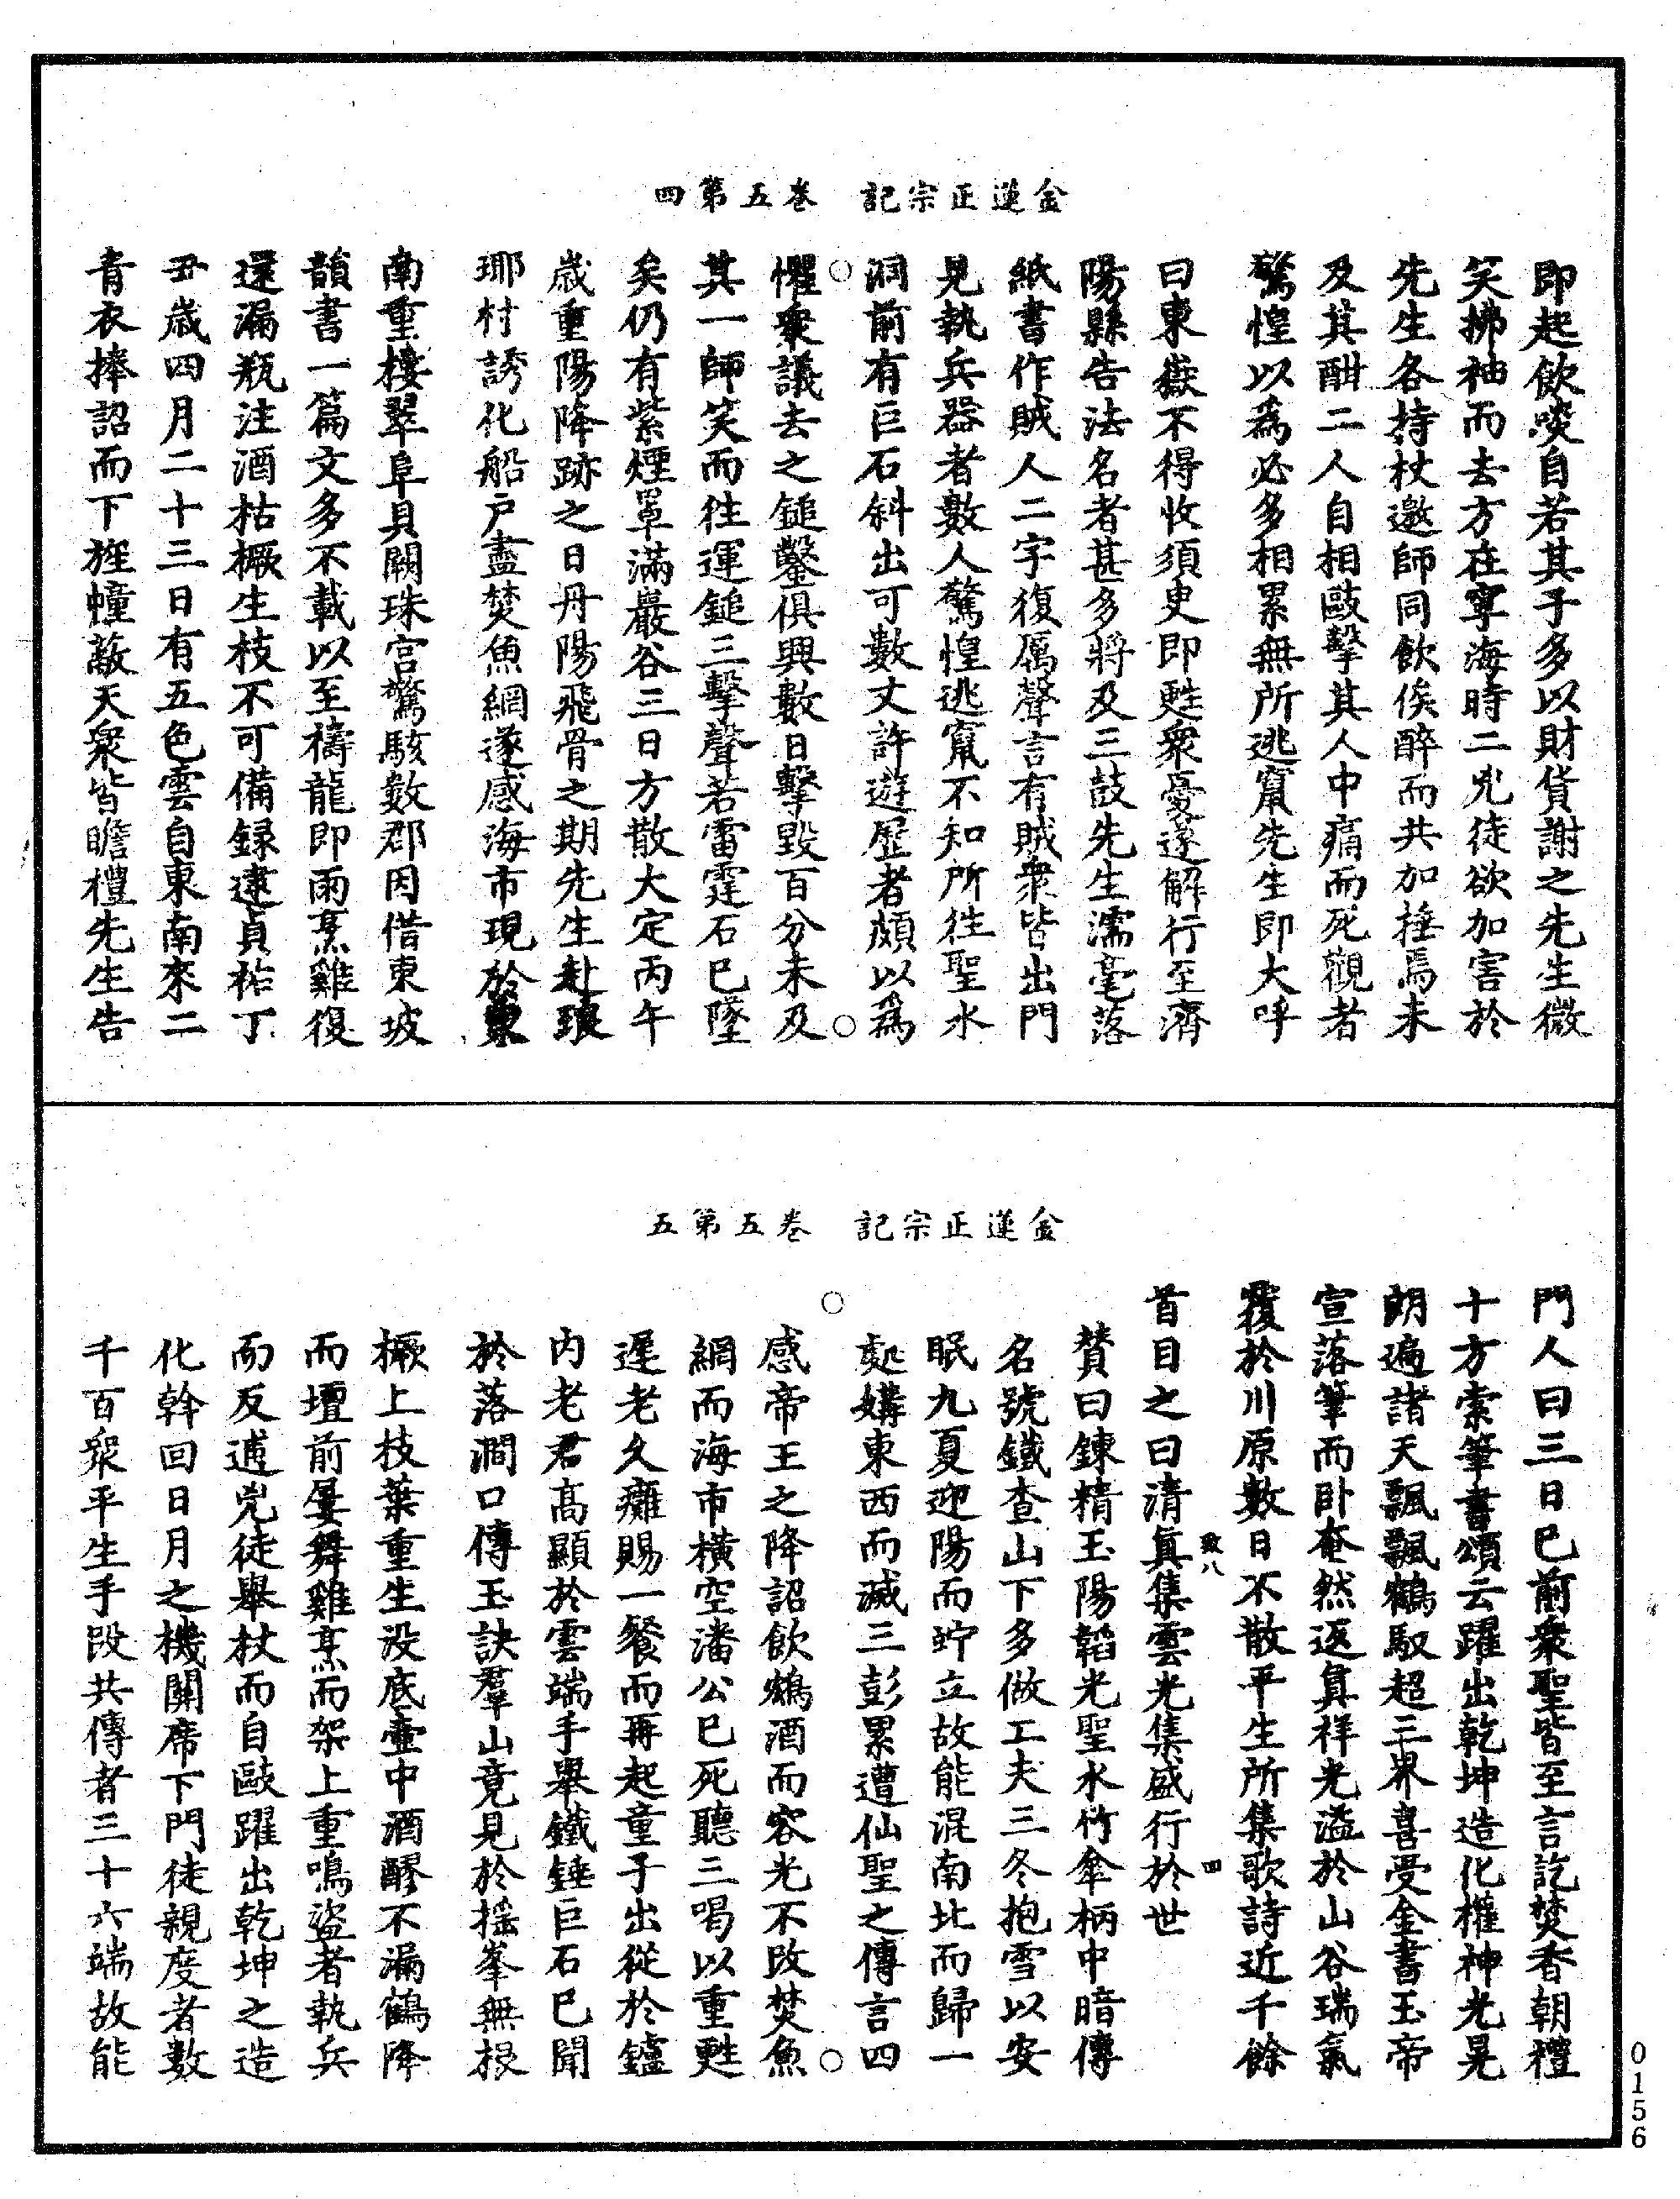 金蓮正宗記　卷五第四
即起飲啖自若其子多以財貨謝之先生微
笑拂袖而去方在寧海時二兇徒欲加害於
先生各持杖邀師同飲俟醉而共加捶焉未
及其酣二人自相毆擊其人中痛而死觀者
驚惶以爲必多相累無所逃竄先生即大呼
曰東嶽不得收須臾即甦衆憂遂解行至濟
陽縣告法名者甚多將及三鼓先生濡毫落
紙書作賊人二字復厲聲言有賊衆皆出門
見執兵器者數人驚惶逃竄不知所往聖水
洞前有巨石斜出可數丈許遊歷者頗以爲
懼衆議去之鎚鑿俱興數日擊毀百分未及
其一師笑而往運鎚三擊聲若雷霆石已墜
矣仍有紫煙罩滿巖谷三日方散大定丙午
歲重陽降跡之日丹陽飛骨之期先生赴瑯
琊村誘化船戶盡焚魚網遂感海市現於東
南重樓翠阜貝闕珠宮驚駭數郡因借東坡
韻書一篇文多不載以至禱龍即雨烹雞復
還漏瓶注酒枯橛生枝不可備録逮貞祐丁
丑歲四月二十三日有五色雲自東南來二
青衣捧詔而下旌幢蔽天衆皆瞻禮先生告
金蓮正宗記　卷五第五
門人曰三日已前衆聖皆至言訖焚香朝禮
十方索筆書頌云躍出乾坤造化權神光晃
朗遍諸天飄飄鶴馭超三界喜受金書玉帝
宣落筆而卧奄然返真祥光溢於山谷瑞氣
覆於川原數日不散平生所集歌詩近千餘
首目之曰清真集雲光集盛行於世
致八　四
贊曰鍊精玉陽韜光聖水竹傘柄中暗傳
名號鐵查山下多做工夫三冬抱雪以安
眠九夏迎陽而竚立故能混南北而歸一
處媾東西而滅三彭累遭仙聖之傳言四
感帝王之降詔飲鴆酒而容光不改焚魚
網而海市橫空潘公已死聽三喝以重甦
遲老久癱賜一餐而再起童子出從於鑪
内老君高顯於雲端手舉鐵錘巨石已聞
於落澗口傳玉訣羣山竟見於揺峯無根
橛上枝葉重生没底壺中酒醪不漏鶴降
而壇前屢舞雞烹而架上重鳴盜者執兵
而反逋兇徒舉杖而自毆躍出乾坤之造
化斡回日月之機關席下門徒親度者數
千百衆平生手段共傳者三十六端故能
0156